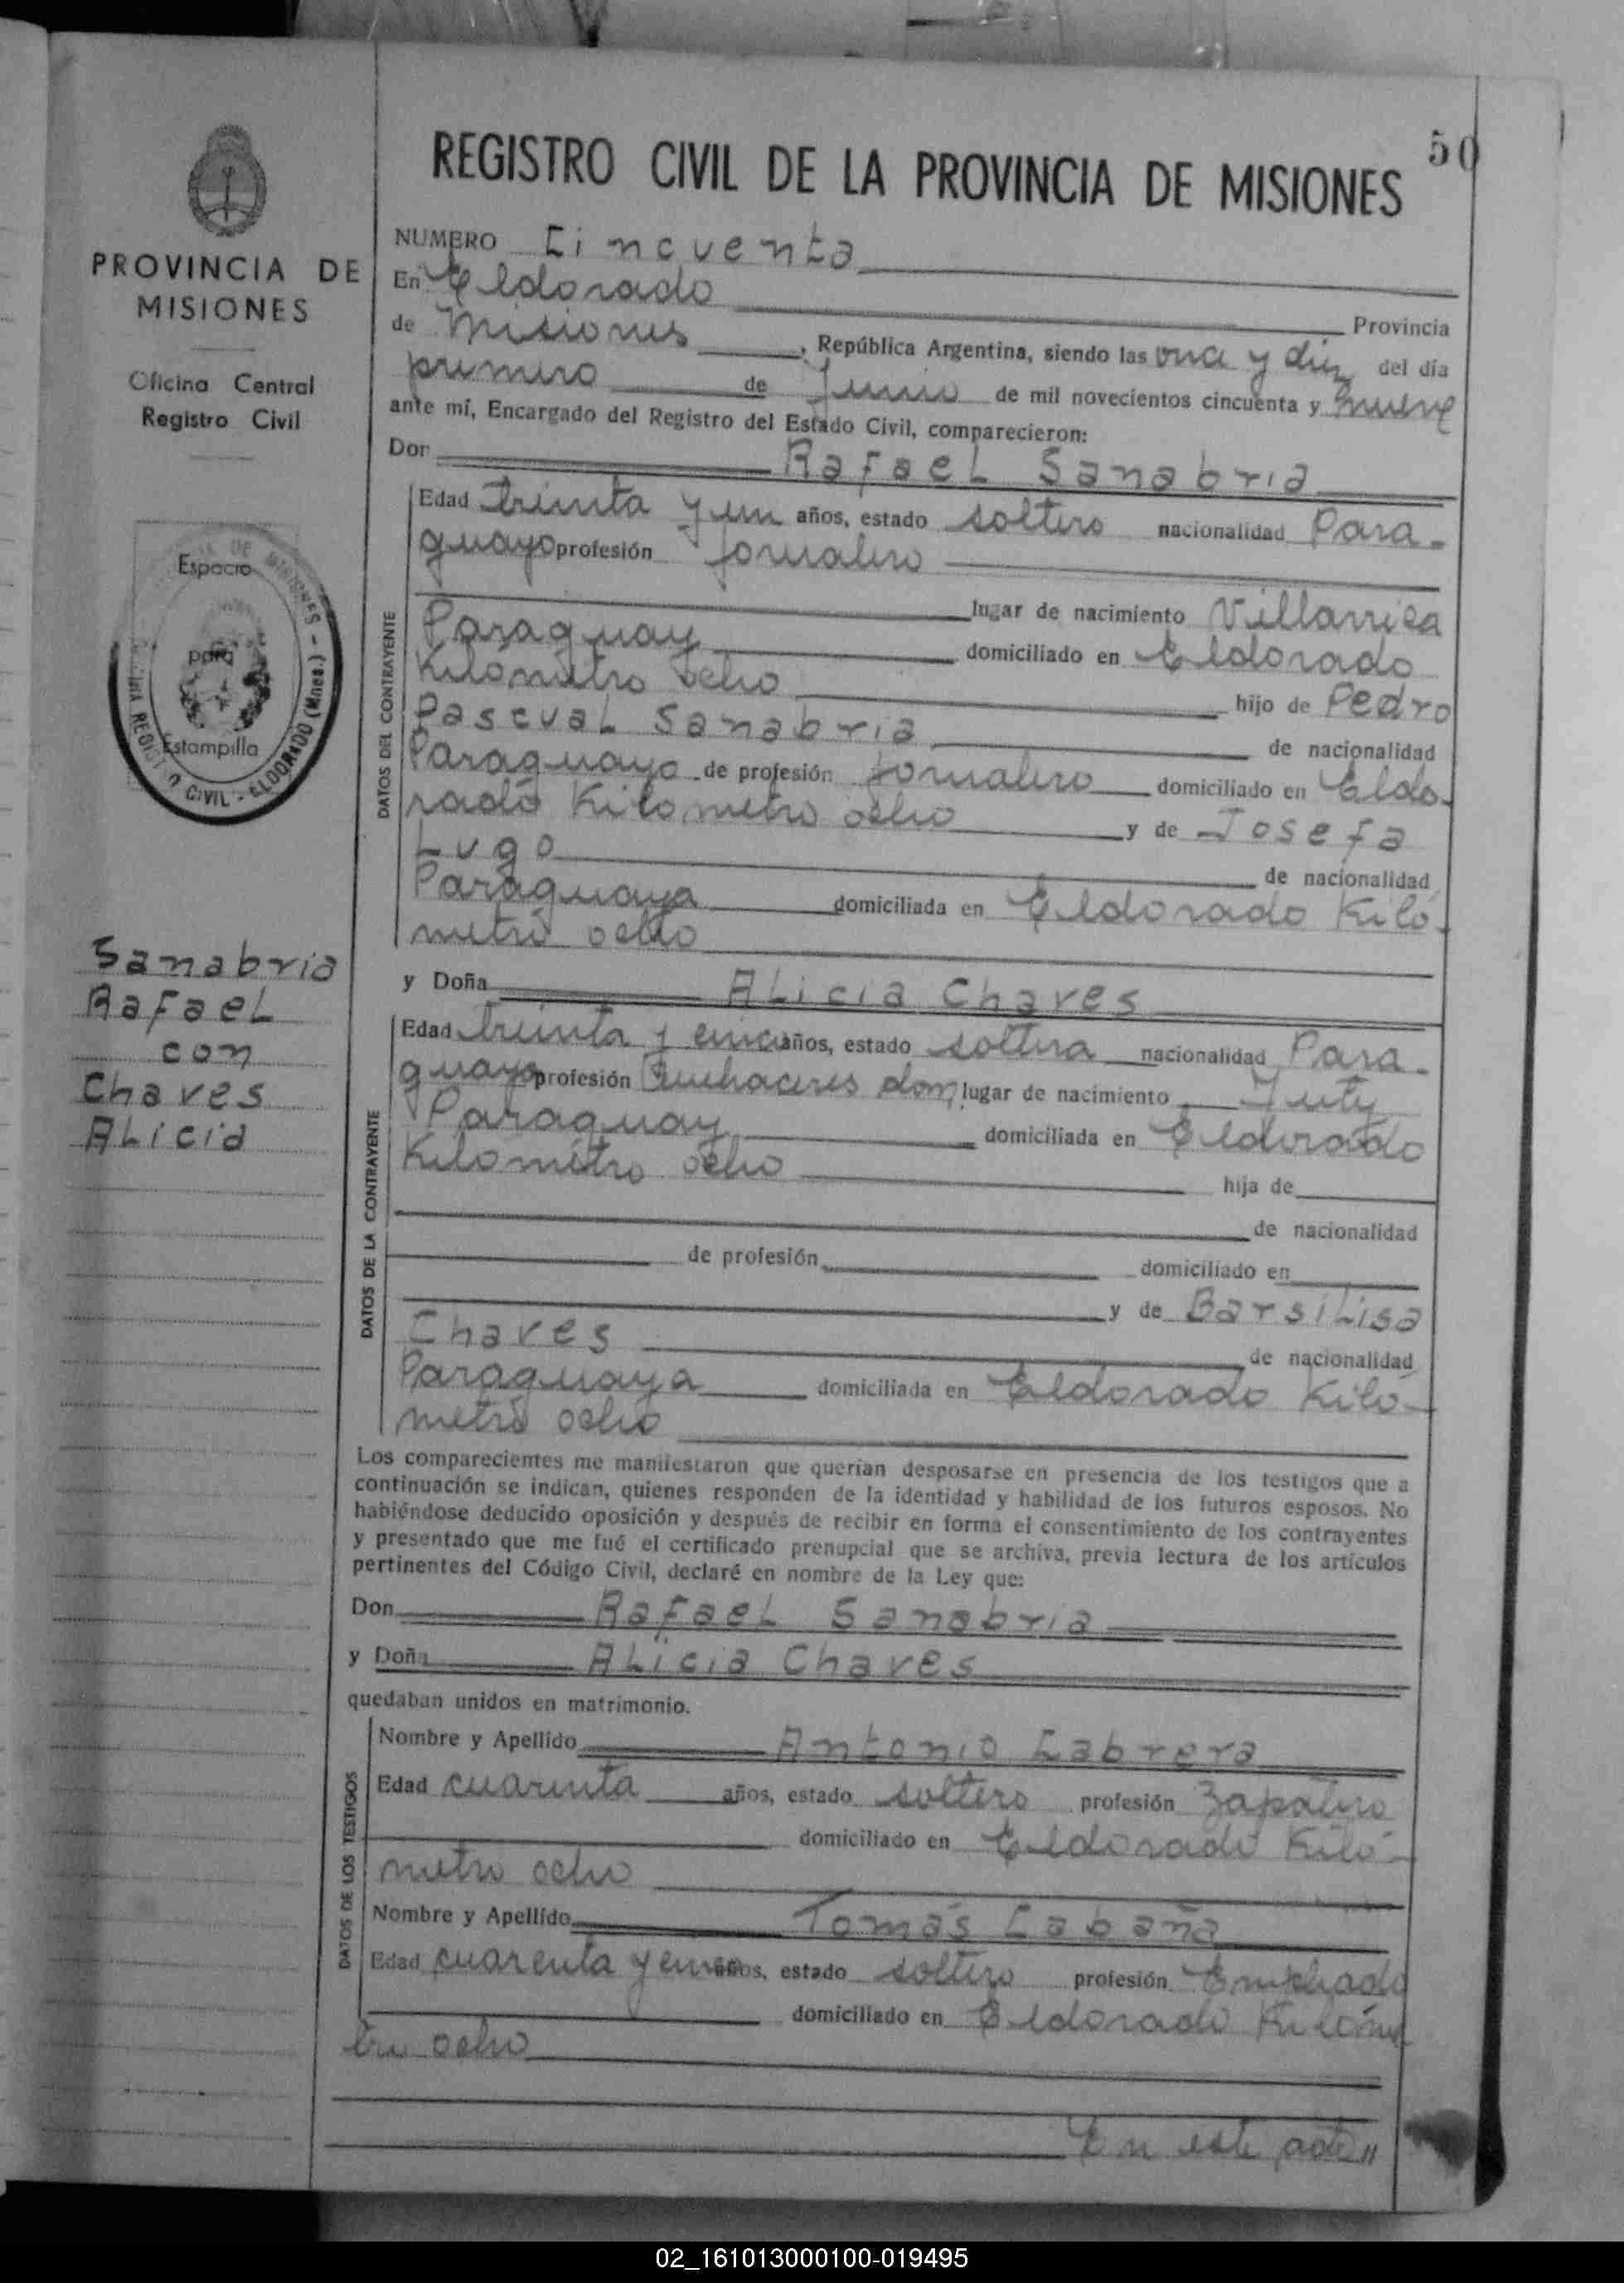 50
REGISTRO CIVIL DE LA PROVINCIA DE MISIONES
PROVINCIA DE
MISIONES
Oficina Central
Registro Civil
Espacio
para
Estampilla
REGISTRO CIVIL - ELDORADO (Mnes.) -
Sanabria
Rafael
con
Chaves
Alicia
NUMERO Cincuenta
En Eldorado Provincia
de Misiones, República Argentina, siendo las once y diez del día
primero de Junio de mil novecientos cincuenta y nueve
ante mí, Encargado del Registro del Estado Civil, comparecieron:
Don Rafael Sanabria
DATOS DEL CONTRAYENTE
Edad treinta y un años, estado soltero nacionalidad Para-
guayo profesión Jornalero
lugar de nacimiento Villarrica
Paraguay domiciliado en Eldorado
Kilómetro ocho hijo de Pedro
Pascual Sanabria de nacionalidad
Paraguayo de profesión Jornalero domiciliado en Eldo-
rado Kilometro ocho y de Josefa
Lugo de nacionalidad
Paraguaya domiciliada en Eldorado Kiló-
metro ocho
y Doña Alicia Chaves
DATOS DE LA CONTRAYENTE
Edad treinta y cinco años, estado soltera nacionalidad Para-
guaya profesión Quehaceres dom. lugar de nacimiento Yuty
Paraguay domiciliada en Eldorado
Kilómetro ocho hija de
de nacionalidad
de profesión domiciliado en
y de Barsilisa
Chaves de nacionalidad
Paraguaya domiciliada en Eldorado Kiló-
metro ocho
Los comparecientes me manifestaron que querían desposarse en presencia de los testigos que a
continuación se indican, quienes responden de la identidad y habilidad de los futuros esposos. No
habiéndose deducido oposición y después de recibir en forma el consentimiento de los contrayentes
y presentado que me fué el certificado prenupcial que se archiva, previa lectura de los artículos
pertinentes del Código Civil, declaré en nombre de la Ley que:
Don Rafael Sanabria
y Doña Alicia Chaves
quedaban unidos en matrimonio.
DATOS DE LOS TESTIGOS
Nombre y Apellido Antonio Cabrera
Edad cuarenta años, estado soltero profesión Zapatero
domiciliado en Eldorado Kiló-
metro ocho
Nombre y Apellido Tomás Cabaña
Edad cuarenta y cinco años, estado soltero profesión Empleado
domiciliado en Eldorado Kilóme
tro ocho
En este acto //
02_161013000100-019495